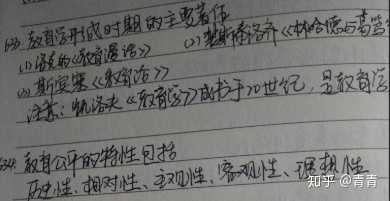 633. 教育学形成时期的主要著作
(1) 洛克的《教育漫话》 (2) 裴斯泰洛齐《林哈德与葛笃
(3) 斯宾塞《教育论》
注意：凯洛夫《教育学》成书于20世纪，是教育学
634. 教育公平的特性包括
历史性、相对性、主观性、客观性、理想性
知乎 @青青